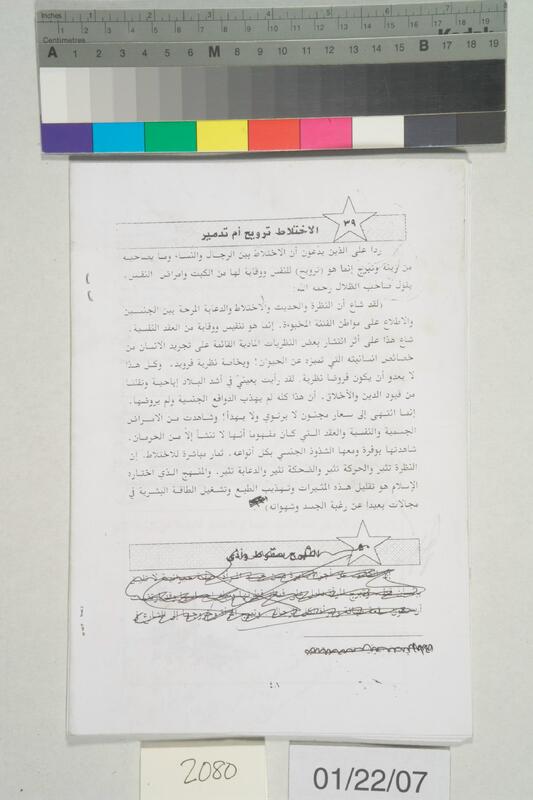 Inches 1 2 3 4 5 6 7 8
1 2 3 4 5 6 7 8 9 10 11 12 13 14 15 16 17 18 19
Centimetres
A 1 2 3 4 5 6 M 8 9 10 11 12 13 14 15 B 17 18 19
٣٩
الاختلاط ترويح أم تدمير
ردا على الذين يدعون أن الاختلاط بين الرجال والنساء وما يصاحبه
من زينة وتبرج إنما هو (ترويح) للنفس ووقاية لها من الكبت وأمراض النفس،
يقول صاحب الظلال رحمه الله:
(لقد شاع أن النظرة والحديث والاختلاط والدعابة المرحة بين الجنسين
والاطلاع على مواطن الفتنة المخبوءة. إنما هو تنفيس ووقاية من العقد النفسية.
شاع هذا على أثر انتشار بعض النظريات المادية القائمة على تجريد الانسان من
خصائص انسانيته التي تميزه عن الحيوان! وبخاصة نظرية فرويد. وكل هذا
لا يعدو أن يكون فروضا نظرية. لقد رأيت بعيني في أشد البلاد إباحية وتفلتا
من قيود الدين والأخلاق. أن هذا كله لم يهذب الدوافع الجنسية ولم يروضها.
إنما انتهى إلى سعار مجنون لا يرتوي ولا يهدأ! وشاهدت من الامراض
الجسمية والنفسية والعقد التي كان مفهوما أنها لا تنشأ إلا من الحرمان.
شاهدتها بوفرة ومعها الشذوذ الجنسي بكل أنواعه. ثمار مباشرة للاختلاط. إن
النظرة تثير والحركة تثير والضحكة تثير والدعابة تثير. والمنهج الذي اختاره
الإسلام هو تقليل هذه المثيرات وتهذيب الطبع وتشغيل الطاقة البشرية في
مجالات بعيدا عن رغبة الجسد وشهواته)
٤١
2080
01/22/07